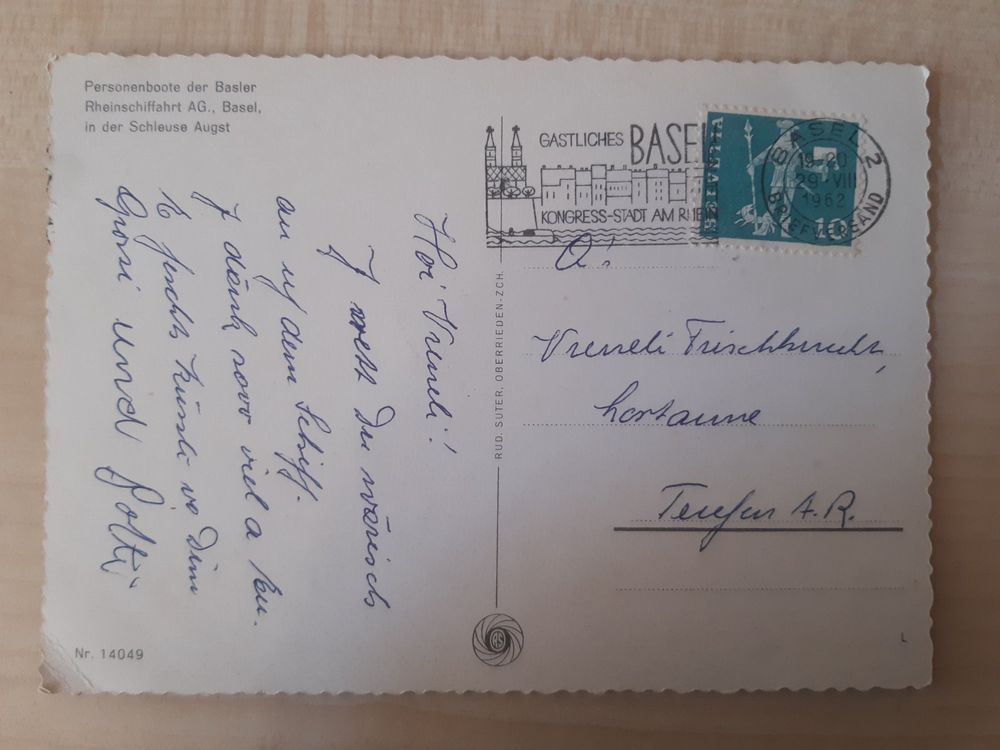 Personenboote der Basler
Rheinschiffahrt AG., Basel,
in der Schleuse Augst
Hoi Vreneli!
I wett Du wärisch
au uf dem Schiff.
I dänk sovo viel a Eu.
E fescht Küssli vo Dim
Grosi und Gotti
Nr. 14049
RUD. SUTER, OBERRIEDEN-ZCH.
GASTLICHES BASEL
KONGRESS-STADT AM RHEIN
HELVETIA
10
BASEL 2
19-20
29 VIII
1962
BRIEFVERSAND
Vreneli
Teufen A.R.
L